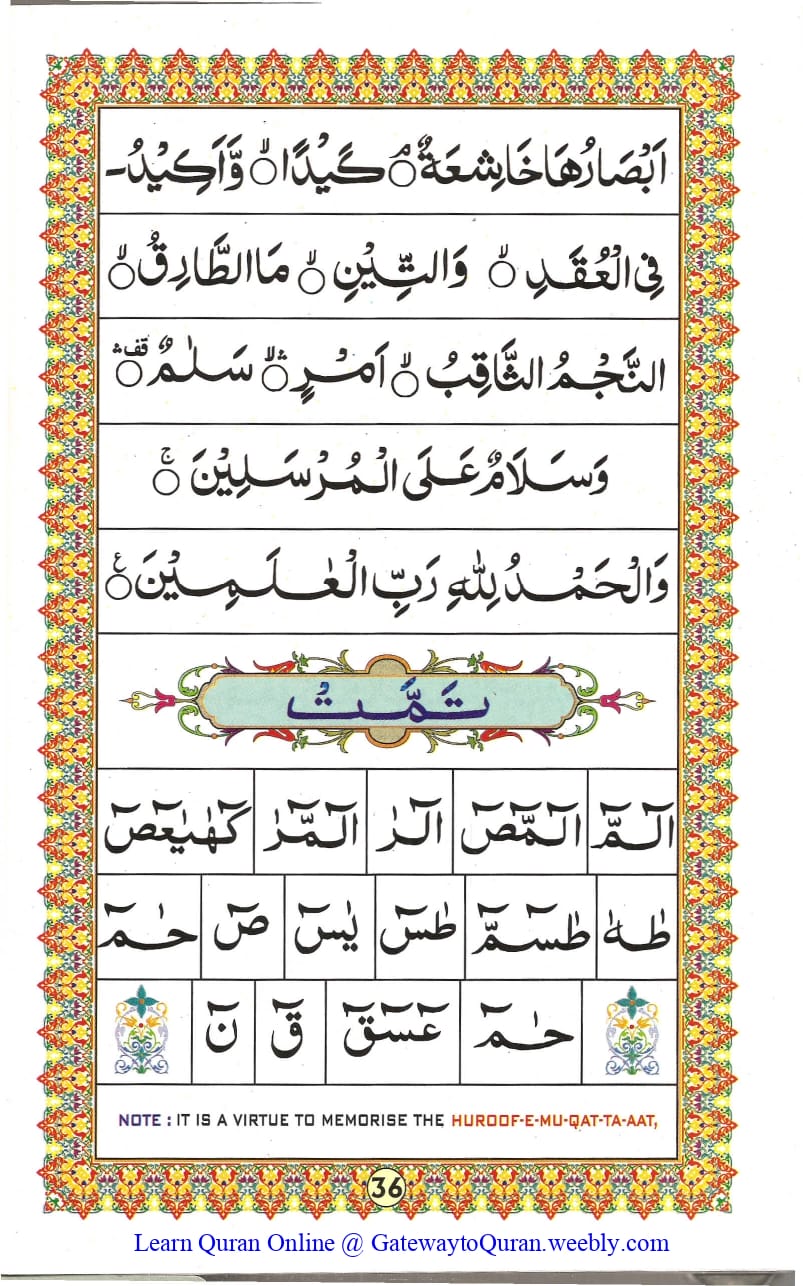 اَبْصَارُهَا خَاشِعَةٌ ۘ كَيْدًا ۙ وَّاَكِيْدُ
فِى الْعُقَدِ ۙ وَالتِّيْنِ ۙ مَا الطَّارِقُ ۙ
النَّجْمُ الثَّاقِبُ ۙ اَمْرٍ ۙۛ سَلٰمٌ ۛ قف
وَسَلَامٌ عَلَى الْمُرْسَلِيْنَ ۚ
وَالْحَمْدُ لِلّٰهِ رَبِّ الْعٰلَمِيْنَ ع
تَمَّتْ
الٓمّٓ الٓمّٓصٓ الٓرٰ الٓمّٓرٰ كٓهٰيٰعٓصٓ
طٰهٰ طٰسٓمّٓ طٰسٓ يٰسٓ صٓ حٰمٓ
حٰمٓ عٓسٓقٓ قٓ نٓ
NOTE : IT IS A VIRTUE TO MEMORISE THE HUROOF-E-MU-QAT-TA-AAT,
36
Learn Quran Online @ GatewaytoQuran.weebly.com